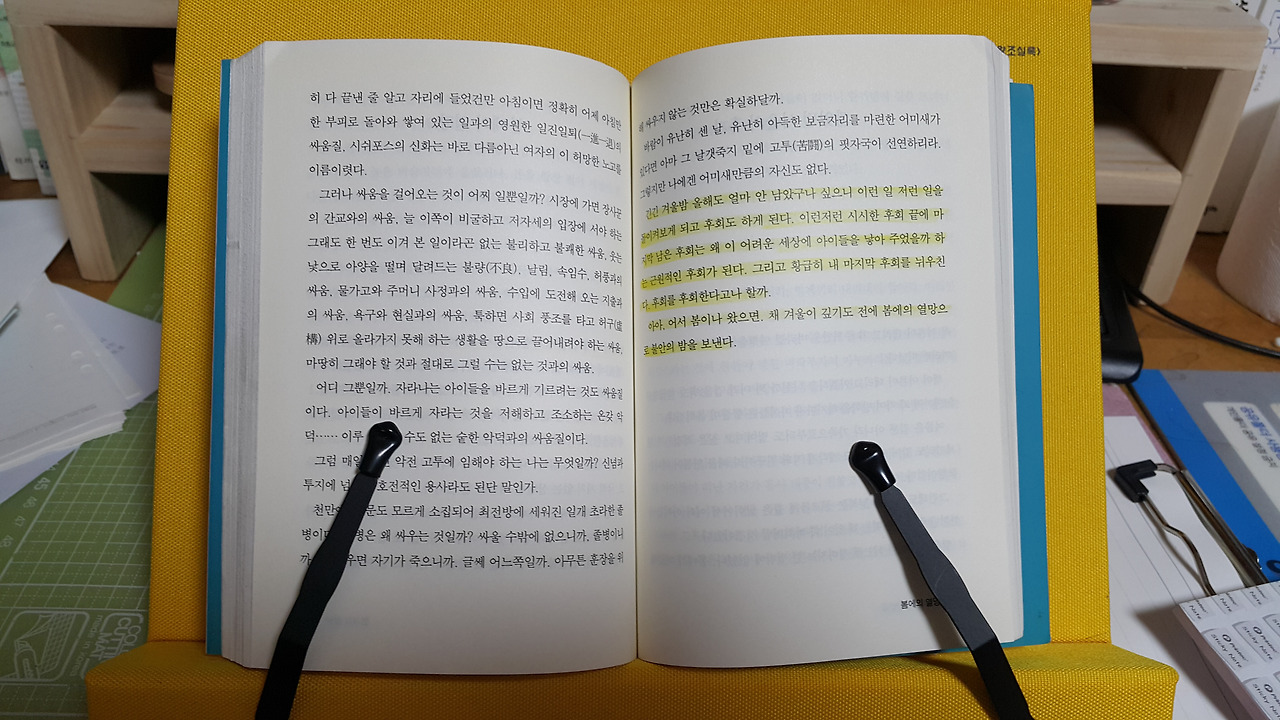 히 다 끝낸 줄 알고 자리에 들었건만 아침이면 정확히 어제 아침만
한 부피로 돌아와 쌓여 있는 일과의 영원한 일진일퇴(一進一退)의
싸움질, 시쉬포스의 신화는 바로 다름아닌 여자의 이 허망한 노고를
이름이렷다.
그러나 싸움을 걸어오는 것이 어찌 일뿐일까? 시장에 가면 장사꾼
의 간교와의 싸움, 늘 이쪽이 비굴하고 저자세의 입장에 서야 하는
그래도 한 번도 이겨 본 일이라곤 없는 불리하고 불쾌한 싸움, 웃는
낯으로 아양을 떨며 달려드는 불량(不良), 날림, 속임수, 허풍과의
싸움, 물가고와 주머니 사정과의 싸움, 수입에 도전해 오는 지출과
의 싸움, 욕구와 현실과의 싸움, 툭하면 사회 풍조를 타고 허구(虛
構) 위로 올라가지 못해 하는 생활을 땅으로 끌어내려야 하는 싸움,
마땅히 그래야 할 것과 절대로 그럴 수는 없는 것과의 싸움.
어디 그뿐일까. 자라나는 아이들을 바르게 기르려는 것도 싸움질
이다. 아이들이 바르게 자라는 것을 저해하고 조소하는 온갖 악
덕…… 이루 수도 없는 숱한 악덕과의 싸움질이다.
그럼 매일 악전 고투에 임해야 하는 나는 무엇일까? 신념과
투지에 호전적인 용사라도 된단 말인가.
천만에 문도 모르게 소집되어 최전방에 세워진 일개 초라한 졸
병이 병은 왜 싸우는 것일까? 싸울 수밖에 없으니까, 졸병이니
까 우면 자기가 죽으니까. 글쎄 어느쪽일까. 아무튼 훈장을 위
해 싸우지 않는 것만은 확실하달까.
바람이 유난히 센 날, 유난히 아득한 보금자리를 마련한 어미새가
있다면 아마 그 날갯죽지 밑에 고투(苦鬪)의 핏자국이 선연하리라.
그렇지만 나에겐 어미새만큼의 자신도 없다.
긴긴 겨울밤 올해도 얼마 안 남았구나 싶으니 이런 일 저런 일을
돌이켜보게 되고 후회도 하게 된다. 이런저런 시시한 후회 끝에 마
지막 남은 후회는 왜 이 어려운 세상에 아이들을 낳아 주었을까 하
는 근원적인 후회가 된다. 그리고 황급히 내 마지막 후회를 뉘우친
다. 후회를 후회한다고나 할까.
아아, 어서 봄이나 왔으면, 채 겨울이 깊기도 전에 봄에의 열망으
로 불안의 밤을 보낸다.
봄에의
Sticky Note